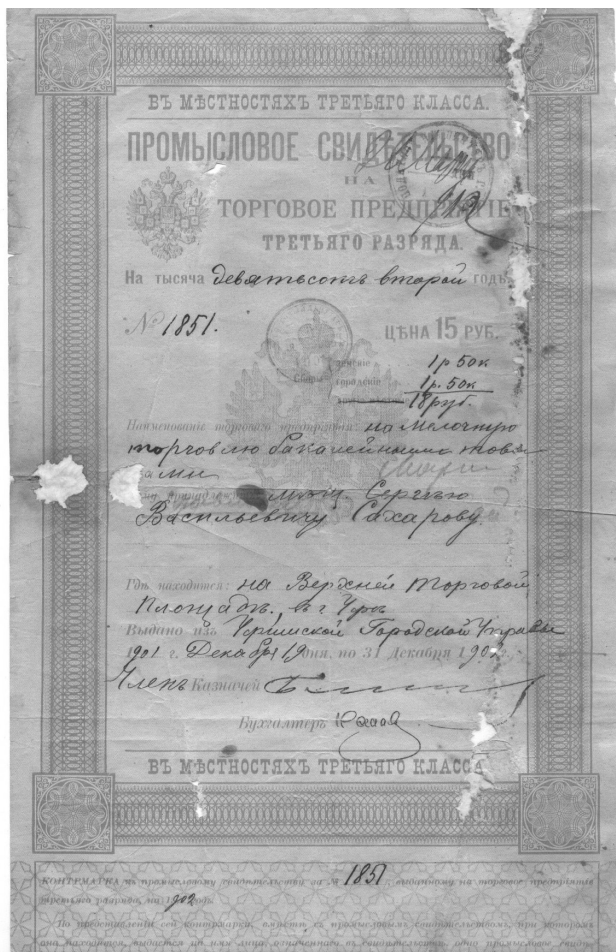 ВЪ МѢСТНОСТЯХЪ ТРЕТЬЯГО КЛАССА.
ПРОМЫСЛОВОЕ СВИДѢТЕЛЬСТВО
НА
ТОРГОВОЕ ПРЕДПРІЯТІЕ
ТРЕТЬЯГО РАЗРЯДА.
На тысяча девятьсотъ второй годъ.
№ 1851.
ЦѢНА 15 РУБ.
земскіе 1р 50к
Сборы городскіе 1р. 50к
18 руб.
Наименованіе торговаго предпріятія: на мелочную
торговлю бакалейными това
рами
Кому принадлежитъ мѣщ. Сергѣю
Васильевичу Сахарову.
Гдѣ находится: на Верхней Торговой
Площадѣ. въ г Уфѣ
Выдано изъ Уфимской Городской Управы
1901 г. Декабря 19 дня, по 31 Декабря 1902 г.
Членъ Казначей
Бухгалтеръ
ВЪ МѢСТНОСТЯХЪ ТРЕТЬЯГО КЛАССА
КОНТРМАРКА къ промысловому свидѣтельству за № 1851 г. выданному на торговое предпріятіе
третьяго разряда, на 1902 годъ.
По предъявленіи сей контрмарки, вмѣстѣ съ промысловымъ свидѣтельствомъ, при которомъ
она находится, выдается на имя лица, означеннаго въ свидѣтельствѣ,